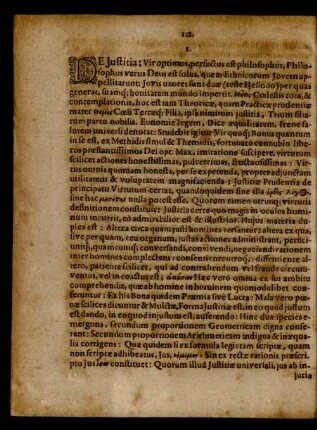 112.
I.
DE Justitia: Vir optimus, perfectus est philosophus, Philo-
sophus verus Deus est solus, quem Ethnicorum Jovem ap-
pellitarunt: Jovis uxores sunt duæ (teste Hesiodo) per quas
generat, suamq; bonitatem mundo impertit. Cœlestis una, &
contemplationis, hoc est tam Theoricæ, quam Practicæ prudentiæ
mater Cœli Terræq; Filia, ipsa nimirum justitia, Trium filia-
rum parto nobilis. Eunomie legem, Dice æqualitatem, Irene sa-
lutem universi denotat: Studebit igitur Vir quoq; Bonus quantum
in se est, ex Methidis simul & Themistis, fortunato connubio, libe-
ros præstantissimos Dei op. Max. imitatione suscipere, virtutum
scilicet actiones honestissimas, pulcerrimas, fructuosissimas: Vir-
tus omnis quoniam honesta, per se expetenda, propter adjunctam
utilitatem & voluptatem magnifacienda: Justitia Prudentia de
principatu Virtutum certat, quandoquidem sine illa
sine hac nulla potest esse. Quorum tamen utriusq; virtutis
definitionem constituit: Justitia certe quo magis in oculos homi-
num incurrit, eo admirabilior est & illustrior. Hujus materia du-
plex est: Altera circa quam justi homines versantur: altera ex qua,
sive per quam, ceu organum, justas actiones administrant, perfici-
untq;, quamcunq; conversandi, convivendi, negociandi rationem
inter homines complectens: consentiente utroq;, differentiene al-
tero, patiente scilicet, qui ad contrahendum vel fraude circum-
ventus, vel in coactus est; Hæc vero omnia ex sui ambitu
comprehendit, quæ ab homine in hominem quomodolibet con-
feruntur: Ex his Bona quidem Præmia sive Lucra: Mala vero pœ-
næ scilices dicuntur & Mulctæ, Forma Justitiæ est in eo quod justum
est dando, in eo quod injustum est, auferendo: Hinc duæ species e-
mergens, secundum proportionem Geometricam digna confe-
rent: Secundum proportionem Arithmeticam indigna & inæqua-
lia corrigens: Quæ quidem si ex formula legis tam scriptæ, quam
non scriptæ adhibeatur, Jus, Sin ex rectæ rationis præscri-
pto Jus constituet: Quorum illud Justitiæ universali, jus ab in-
juria